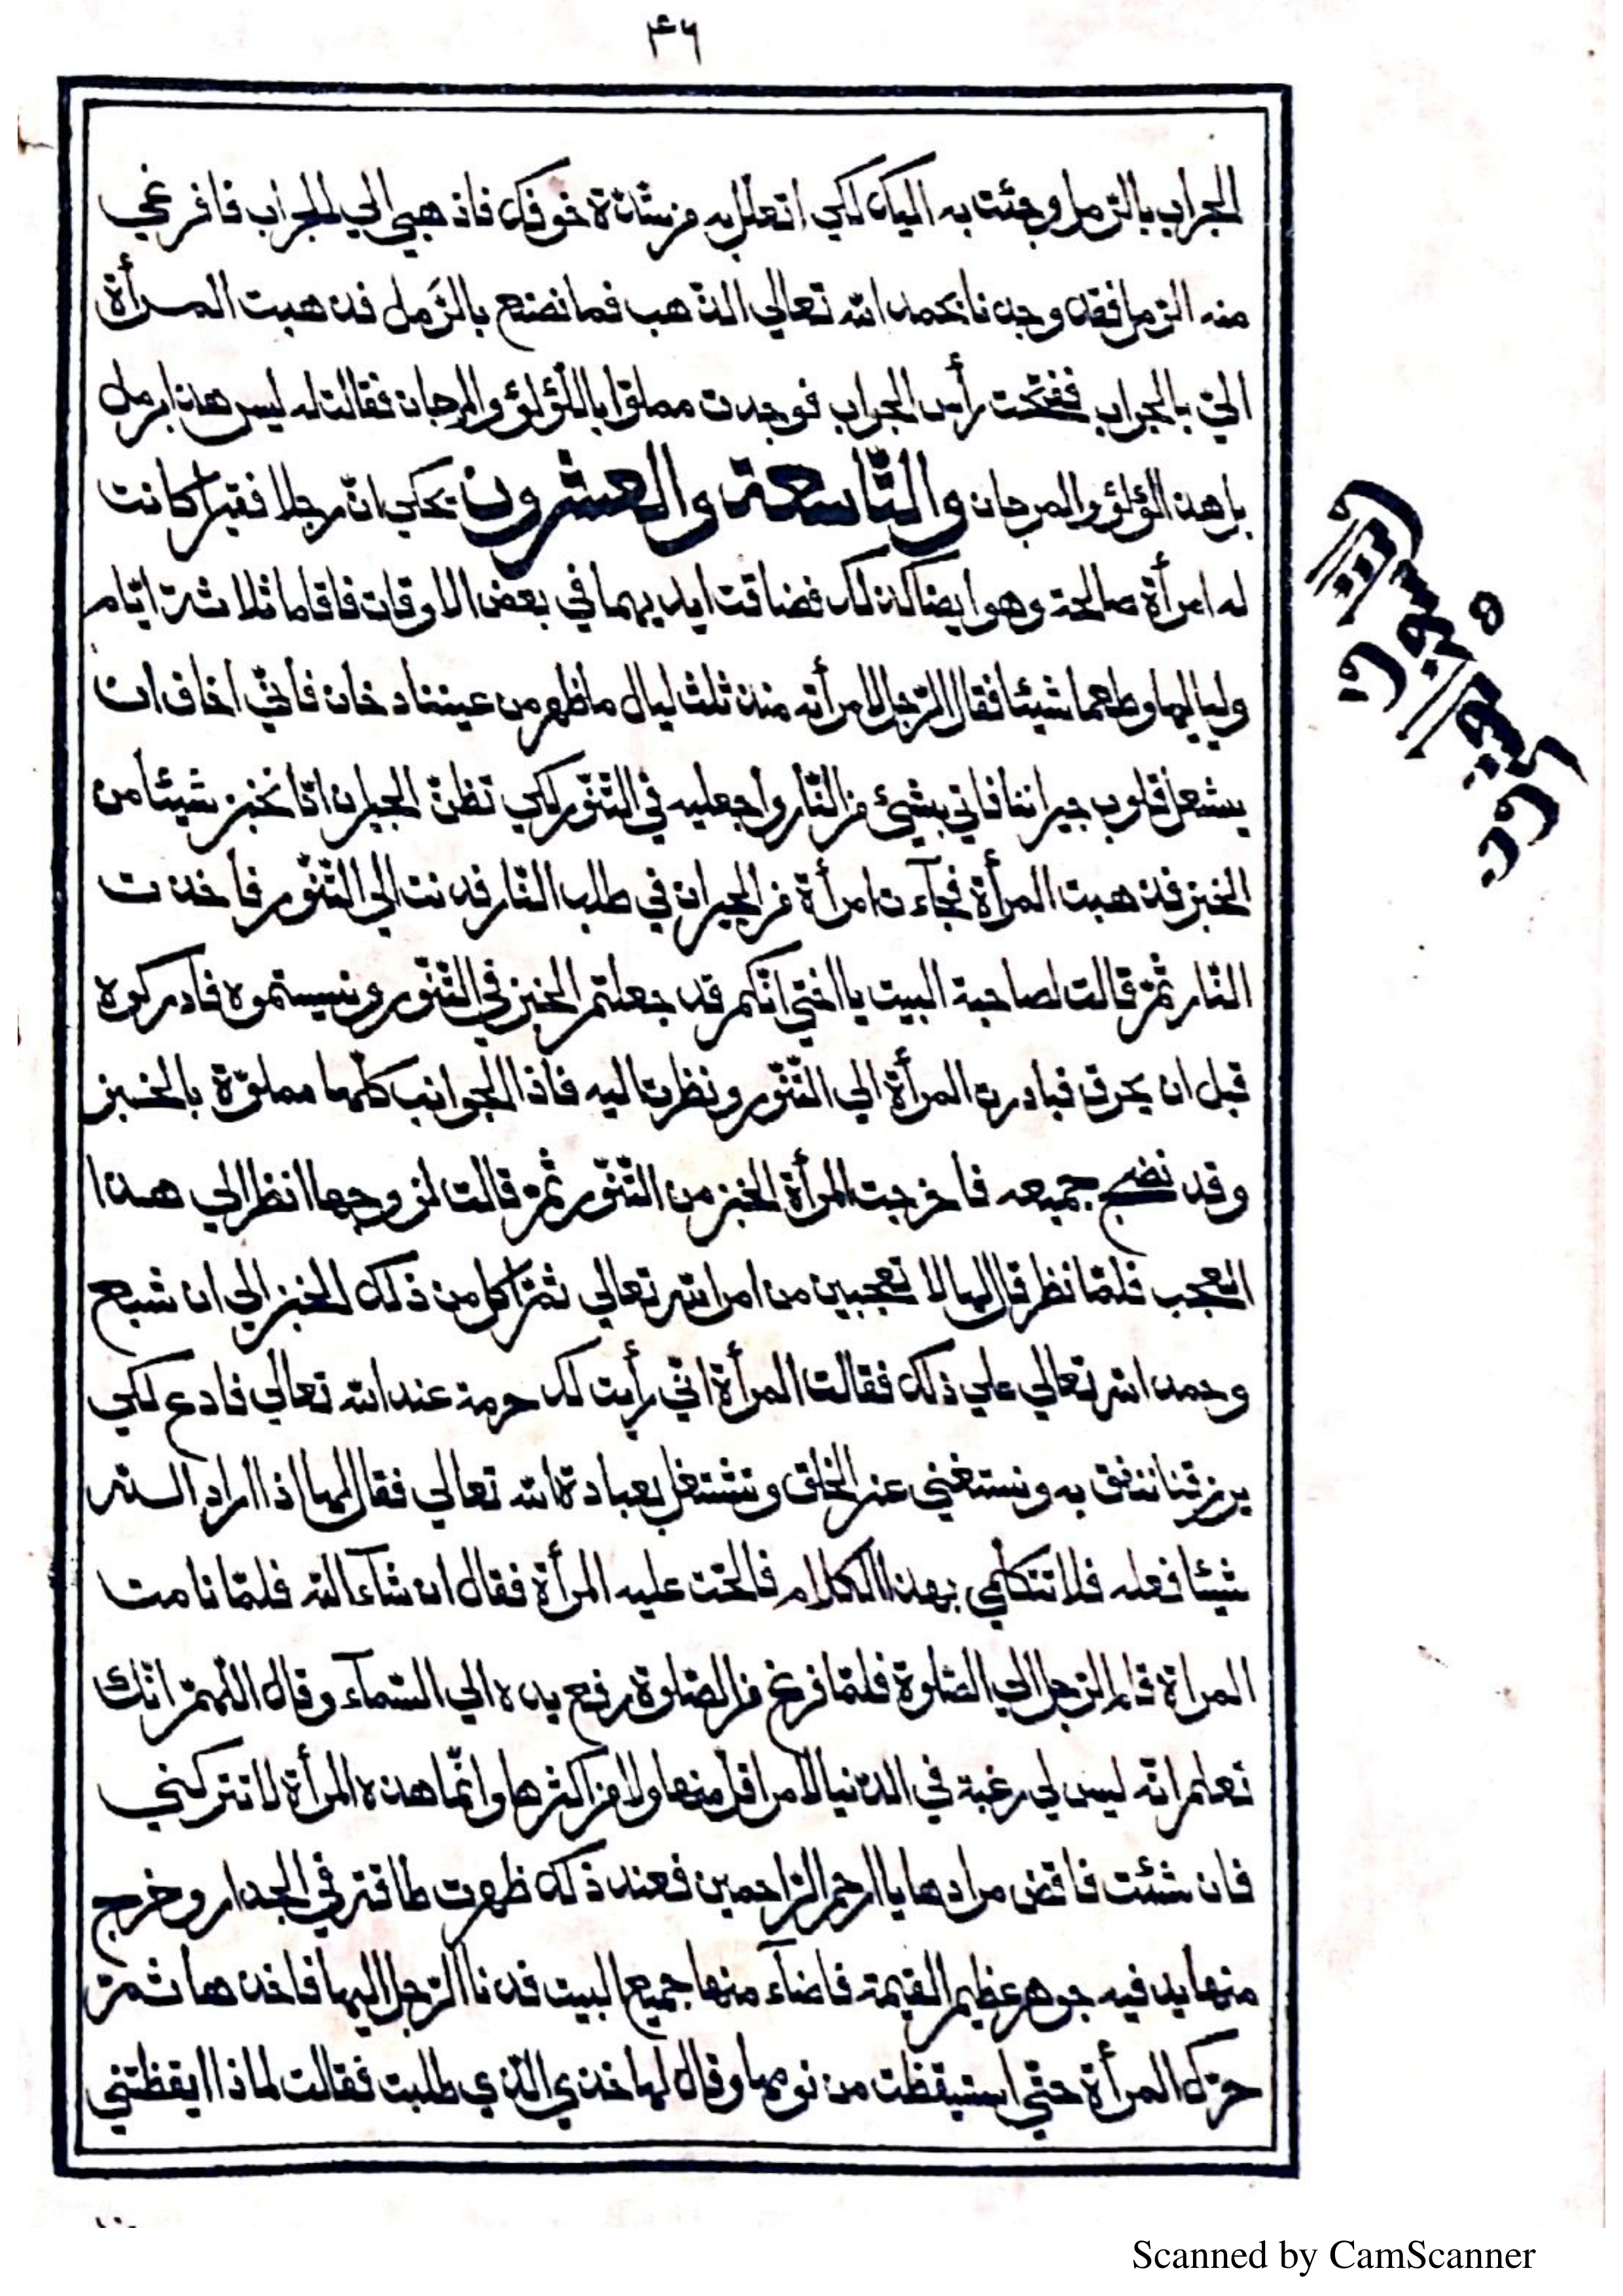 ٣٦
الجراب بالرّمل وجئت به اليك لكي اتعلّل به من شدّة خوفك فاذهبي الي الجراب فافرغي
منه الرّمل فقد وجدنا بحمد الله تعالي الذهب فما نصنع بالرّمل فذهبت المرأة
الي الجراب ففتحت رأس الجراب فوجدت مملوّا باللّؤلؤ والمرجان فقالت له ليس هذا برمل
بل هذا لؤلؤ والمرجان والتّاسعة والعشرون يحكي انّ رجلا فقيرا كانت
له امرأة صالحة وهو ايضا كذلك فضاقت ايديهما في بعض الاوقات فاقاما ثلاثة ايّام
ولياليها وطعما شيئا فقال الرّجل لامرأته منذ ثلث ليال ما ظهر من عيننا دخان فانّي اخاف ان
يشعل قلوب جيراننا فاتي بشيئ من النّار واجعليه في التّنّور لكي تظنّ الجيران انّا نخبز شيئا من
الخبز فذهبت المرأة فجآءت امرأة من الجيران في طلب النّار فدنت الي التّنّور فأخذت
النّار ثمّ قالت لصاحبة البيت يا اختي انّكم قد جعلتم الخبز في التّنّور ونسيتموه فادركوه
قبل ان يحرق فبادرت المرأة الي التّنّور ونظرت اليه فاذا الجوانب كلّها مملوّة بالخبز
وقد نضج جميعه فاخرجت المرأة الخبز من التّنّور ثمّ قالت لزوجها انظر الي هذا
العجب فلمّا نظر قال لها لا تعجبين من امر الله تعالي ثمّ اكل من ذلك الخبز الي ان شبع
وحمد الله تعالي علي ذلك فقالت المرأة انّي رأيت لك حرمة عند الله تعالي فادع لكي
يرزقنا ننفق به ونستغني عن الخلق ونشتغل بعبادة الله تعالي فقال لها اذا اراد الله
شيئا فعله فلا تتكلّمي بهذا الكلام فالحّت عليه المرأة فقال ان شآء الله فلمّا نامت
المرأة قام الرّجل الي الصّلوة فلمّا فرغ من الصّلوة رفع يده الي السّمآء وقال اللّهمّ انّك
تعلم انّه ليس لي رغبة في الدّنيا لا من اقل منها ولا من اكثرها وانّما هذه المرأة لا تتركني
فان شئت فاقض مرادها يا ارحم الرّاحمين فعند ذلك ظهرت طاقة في الجدار وخرج
منها يد فيه جوهر عظيم القيمة فاضآء منها جميع البيت فدنا الرّجل اليها فاخذها ثمّ
حرّك المرأة حتّي استيقظت من نومها وقال لها خذي الّذي طلبت فقالت لماذا ايقظتني
Scanned by CamScanner